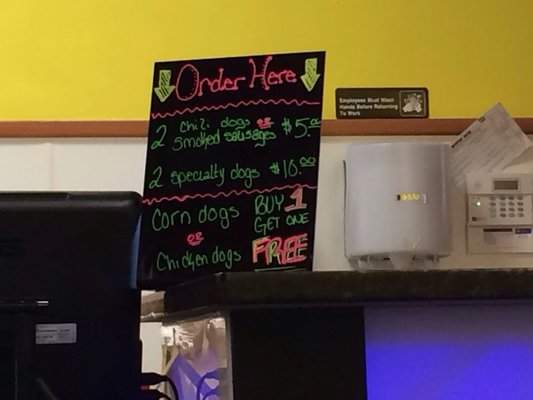 Order Here
2 chili dogs or smoked sausages $5.00
2 specialty dogs $10.00
Corn dogs
or
Chicken dogs
BUY 1
GET ONE
FREE
Employees Must Wash
Hands Before Returning
To Work